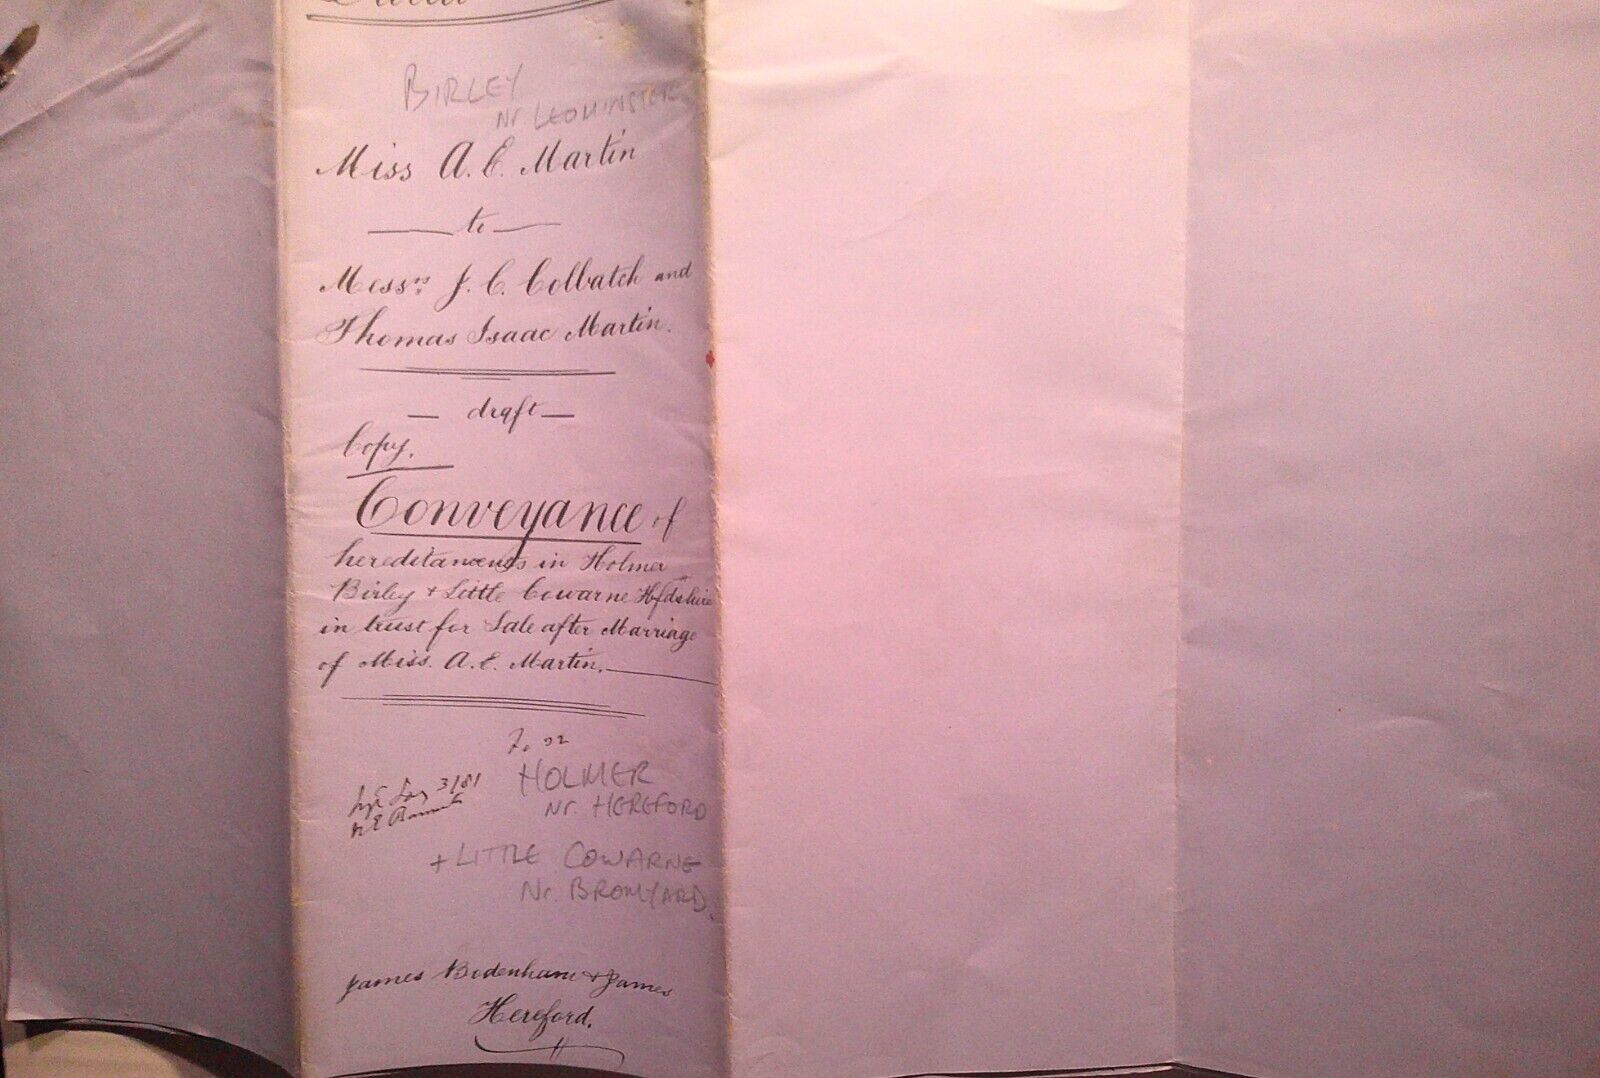 BIRLEY
Nr LEOMINSTER
Miss A. E. Martin
to
Messrs J. C. Colbatch and
Thomas Isaac Martin.
draft
Copy.
Conveyance of
hereditaments in Holmer
Birley + Little Cowarne Hfdshire
in trust for Sale after Marriage
of Miss. A. E. Martin.
Fo 22
3/81
HOLMER
Nr. HEREFORD
+ LITTLE COWARNE
Nr. BROMYARD.
James Bodenham & James
Hereford.